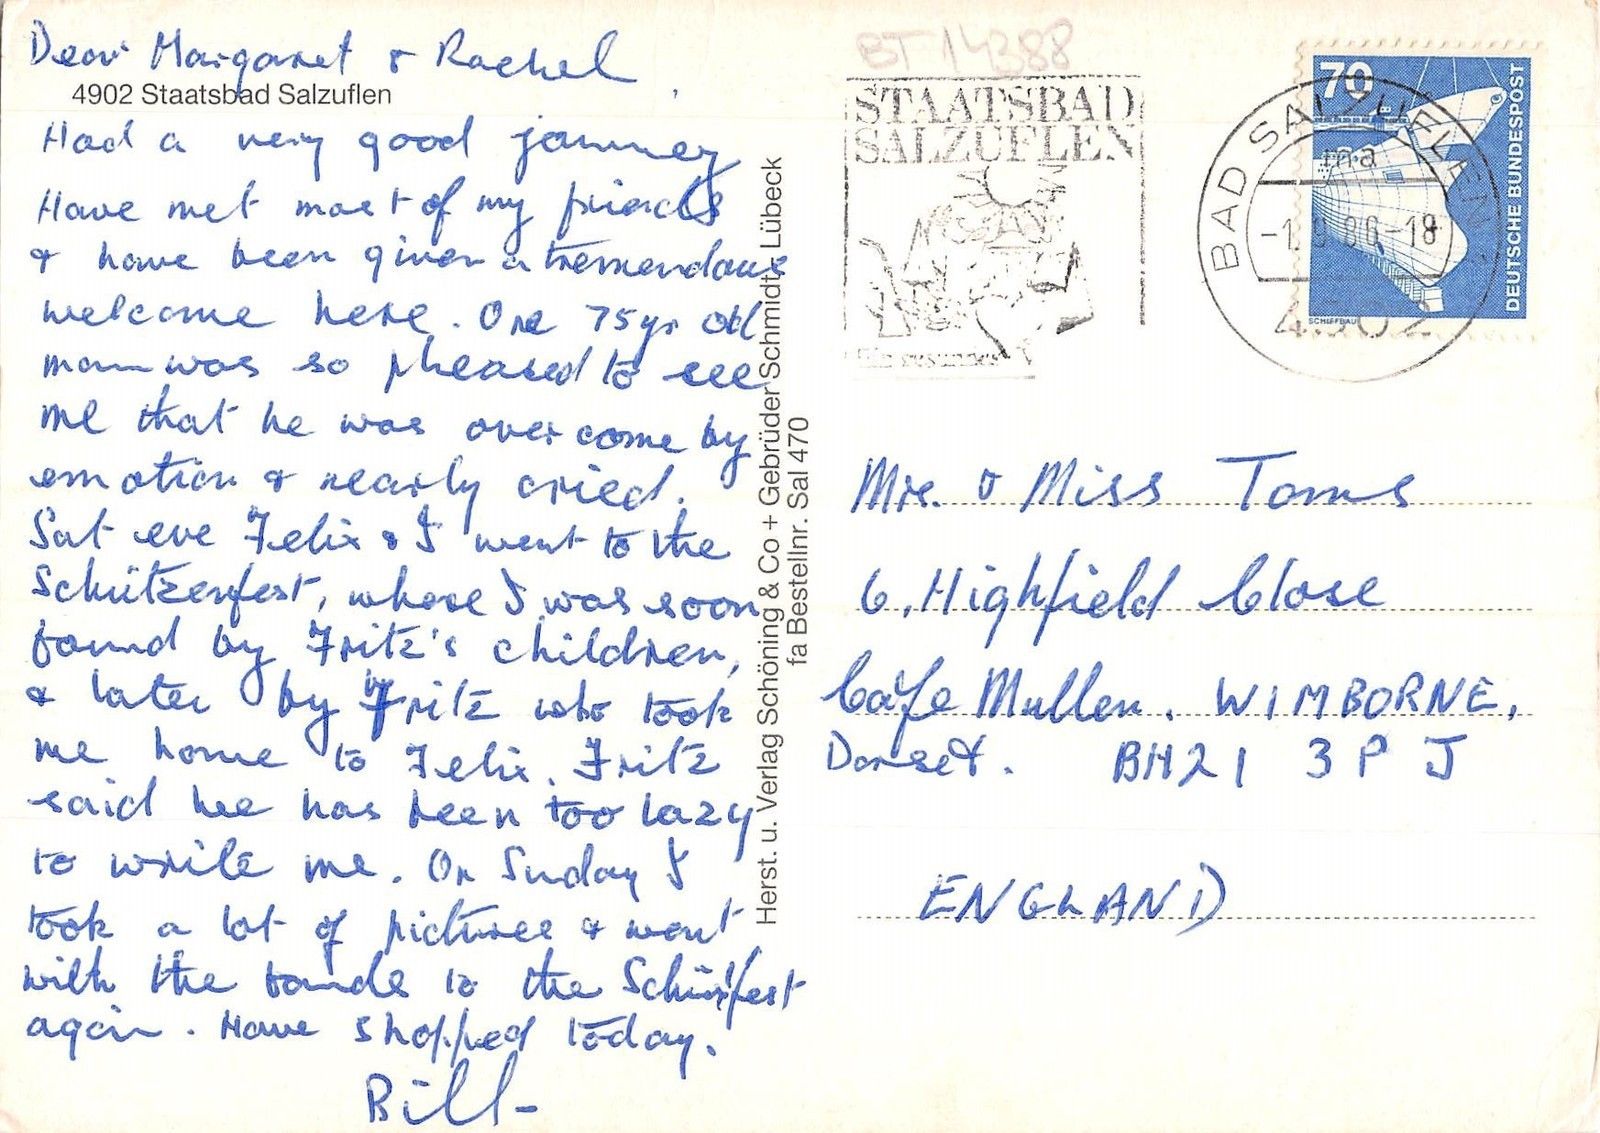 Dear Margaret & Rachel
4902 Staatsbad Salzuflen
Had a very good journey
Have met most of my friends
& have been given a tremendous
welcome here. One 75 yr old
man was so pleased to see
me that he was overcome by
emotion & nearly cried.
Sat eve Felix & I went to the
Schützenfest, where I was soon
found by Fritz's children,
& later by Fritz who took
me home to Felix. Fritz
said he has been too lazy
to write me. On Sunday I
took a lot of pictures & went
with the bands to the
again. Have shopped today.
Bill-
Herst. u. Verlag Schöning & Co + Gebrüder Schmidt, Lübeck
fa Bestellnr. Sal 470
BT 14388
STAATSBAD
SALZUFLEN
70
DEUTSCHE BUNDESPOST
SCHIFFBAU
BAD SALZUFLEN
4902
Mrs. & Miss Toms
6, Highfield Close
Corfe Mullen. WIMBORNE,
Dorset. BH21 3PJ
ENGLAND